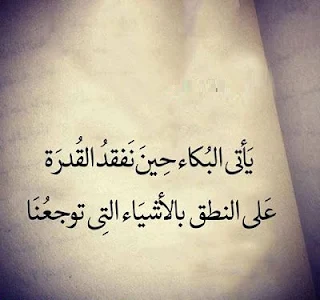 يَأتى البُكاء حِينَ نَفقدُ القُدرَة
عَلى النطق بالأشيَاء التِى توجعُنَا